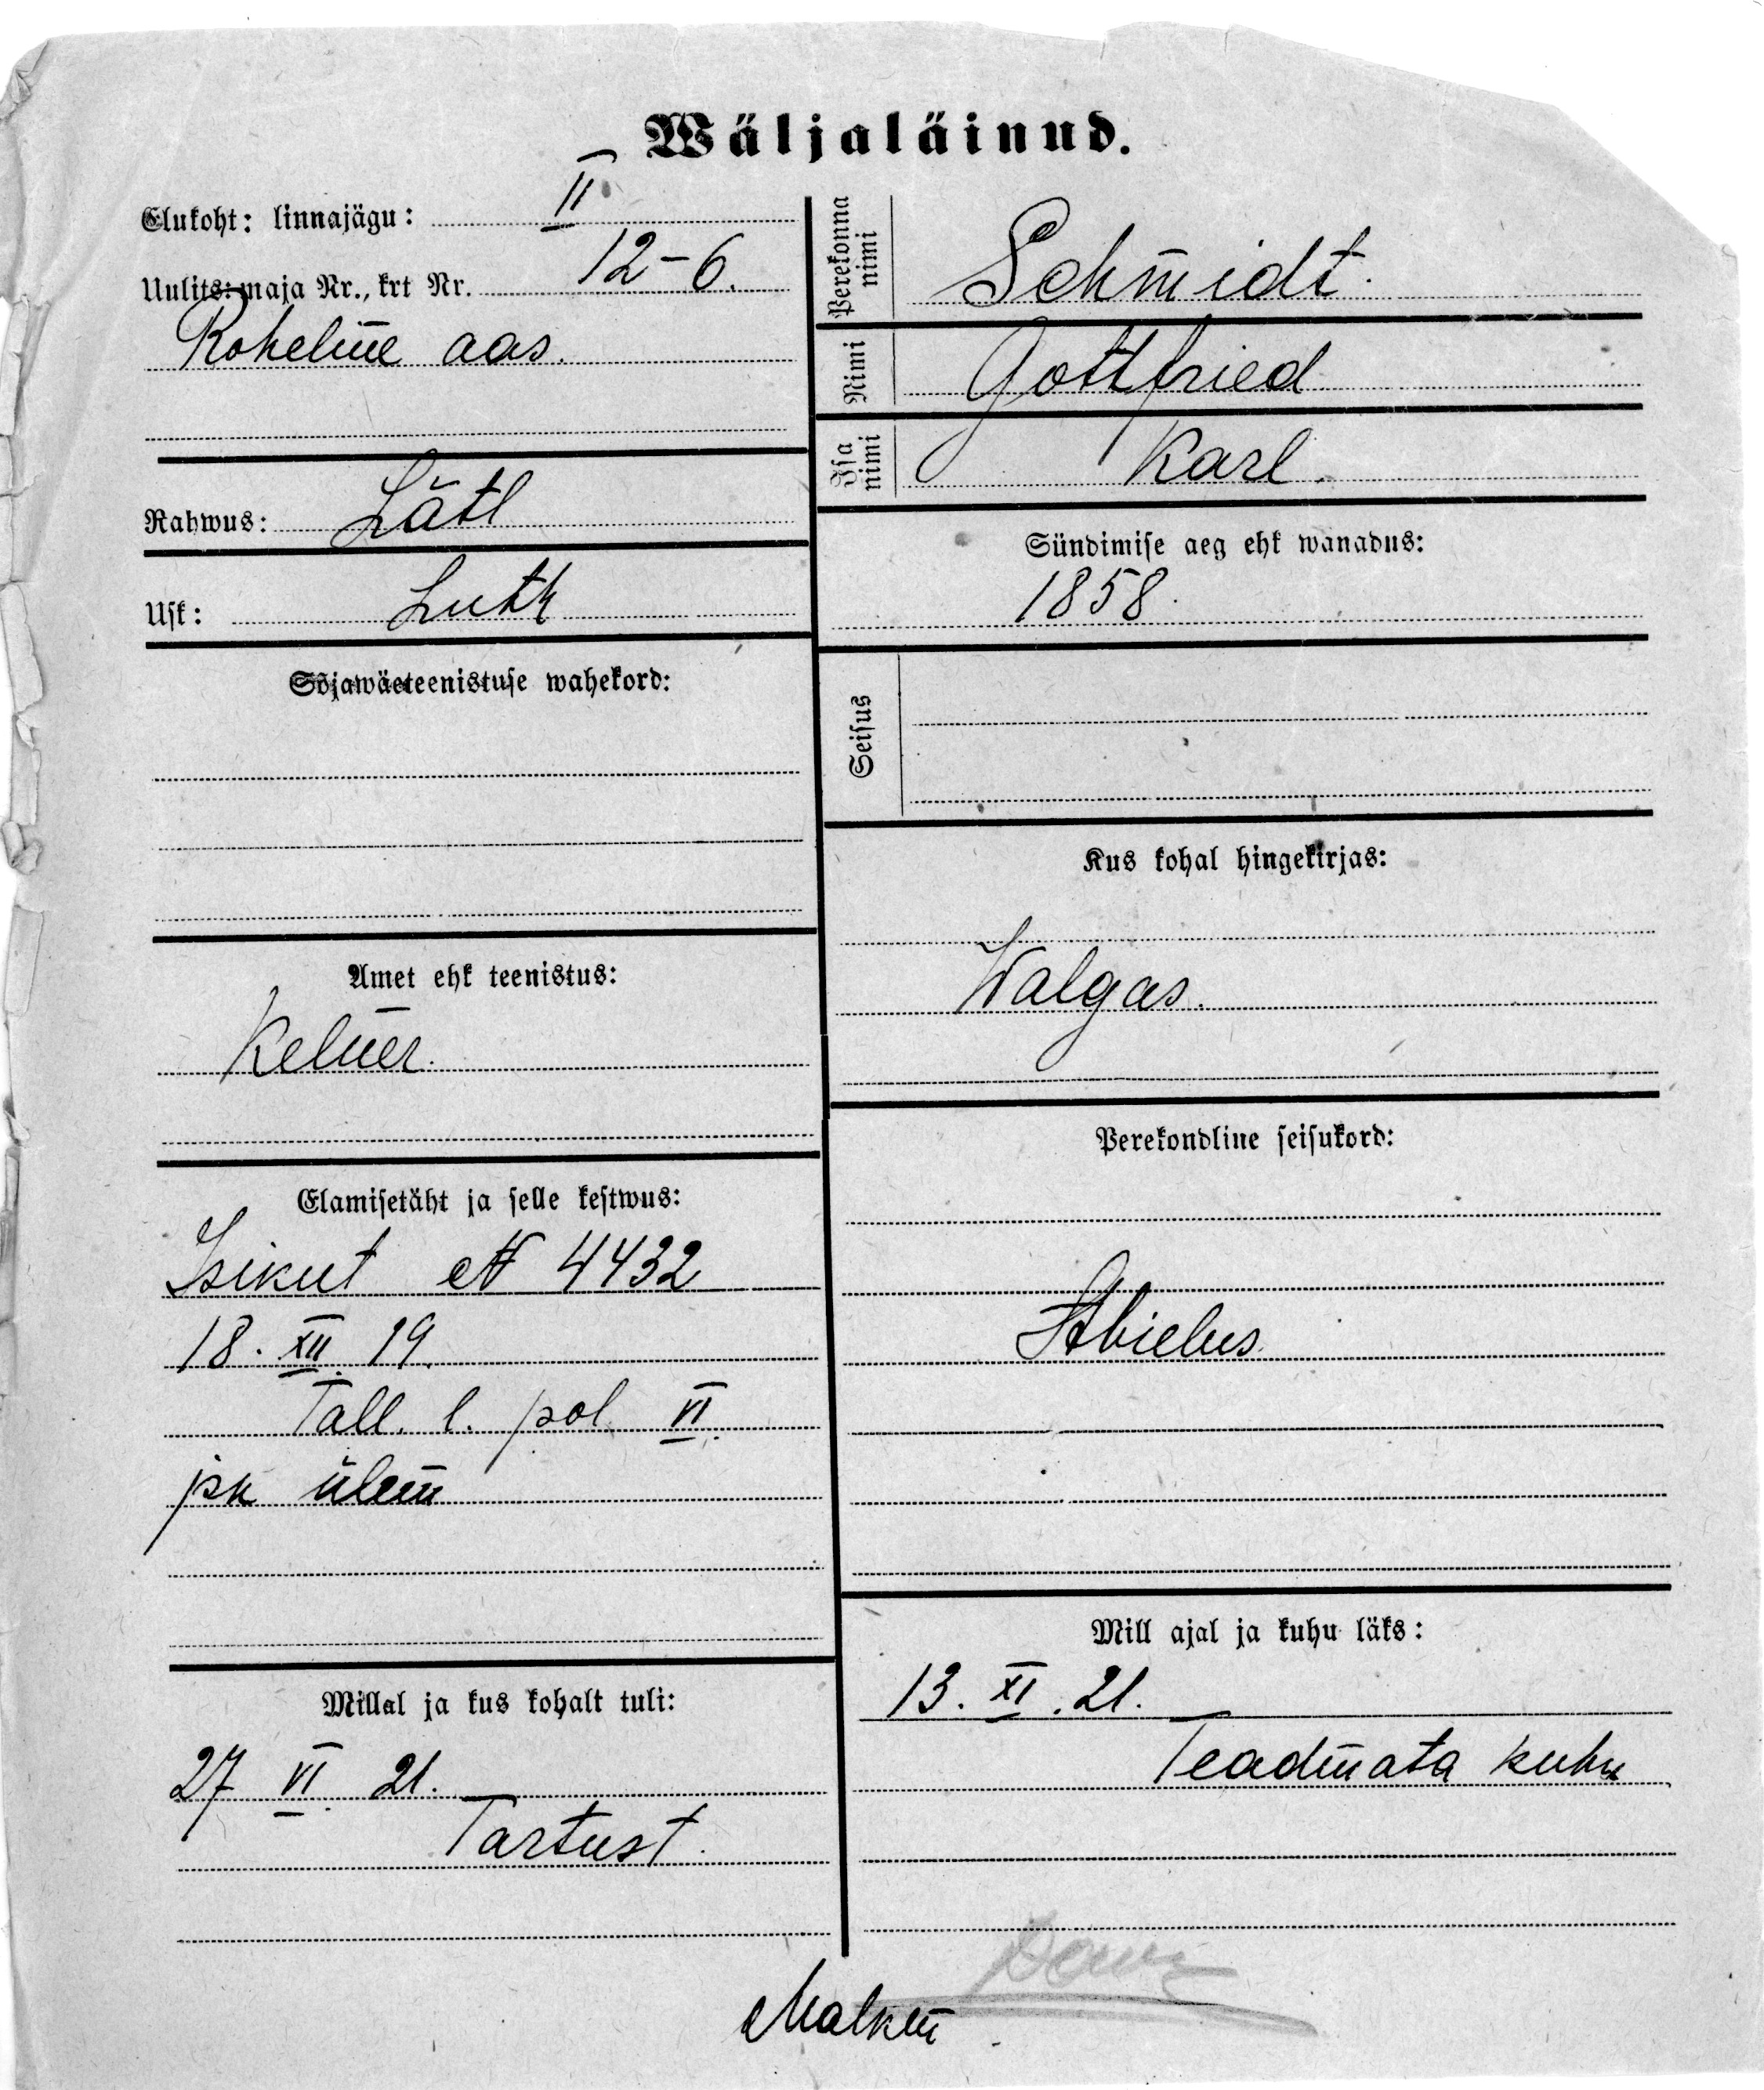 Wäljaläinud.
Elukoht: linnajägu: II
Uulits: maja Nr., krt Nr. 12-6.
Roheline aas.
Rahwus: Lätl
Usk: Luth
Sõjawäeteenistuse wahekord:
Amet ehk teenistus:
Kelner.
Elamisetäht ja selle kestwus:
Isikut № 4432
18. XII 19.
Tall. l. pol. VI
jsk ülem
Millal ja kus kohalt tuli:
27 VI 21.
Tartust.
Perekonna nimi Schmidt.
Nimi Gottfried
Isa nimi Karl.
Sündimise aeg ehk wanadus:
1858.
Seisus
Kus kohal hingekirjas:
Walgas.
Perekondline seisukord:
Abielus.
Mill ajal ja kuhu läks:
13. XI. 21.
Teadmata kuhu